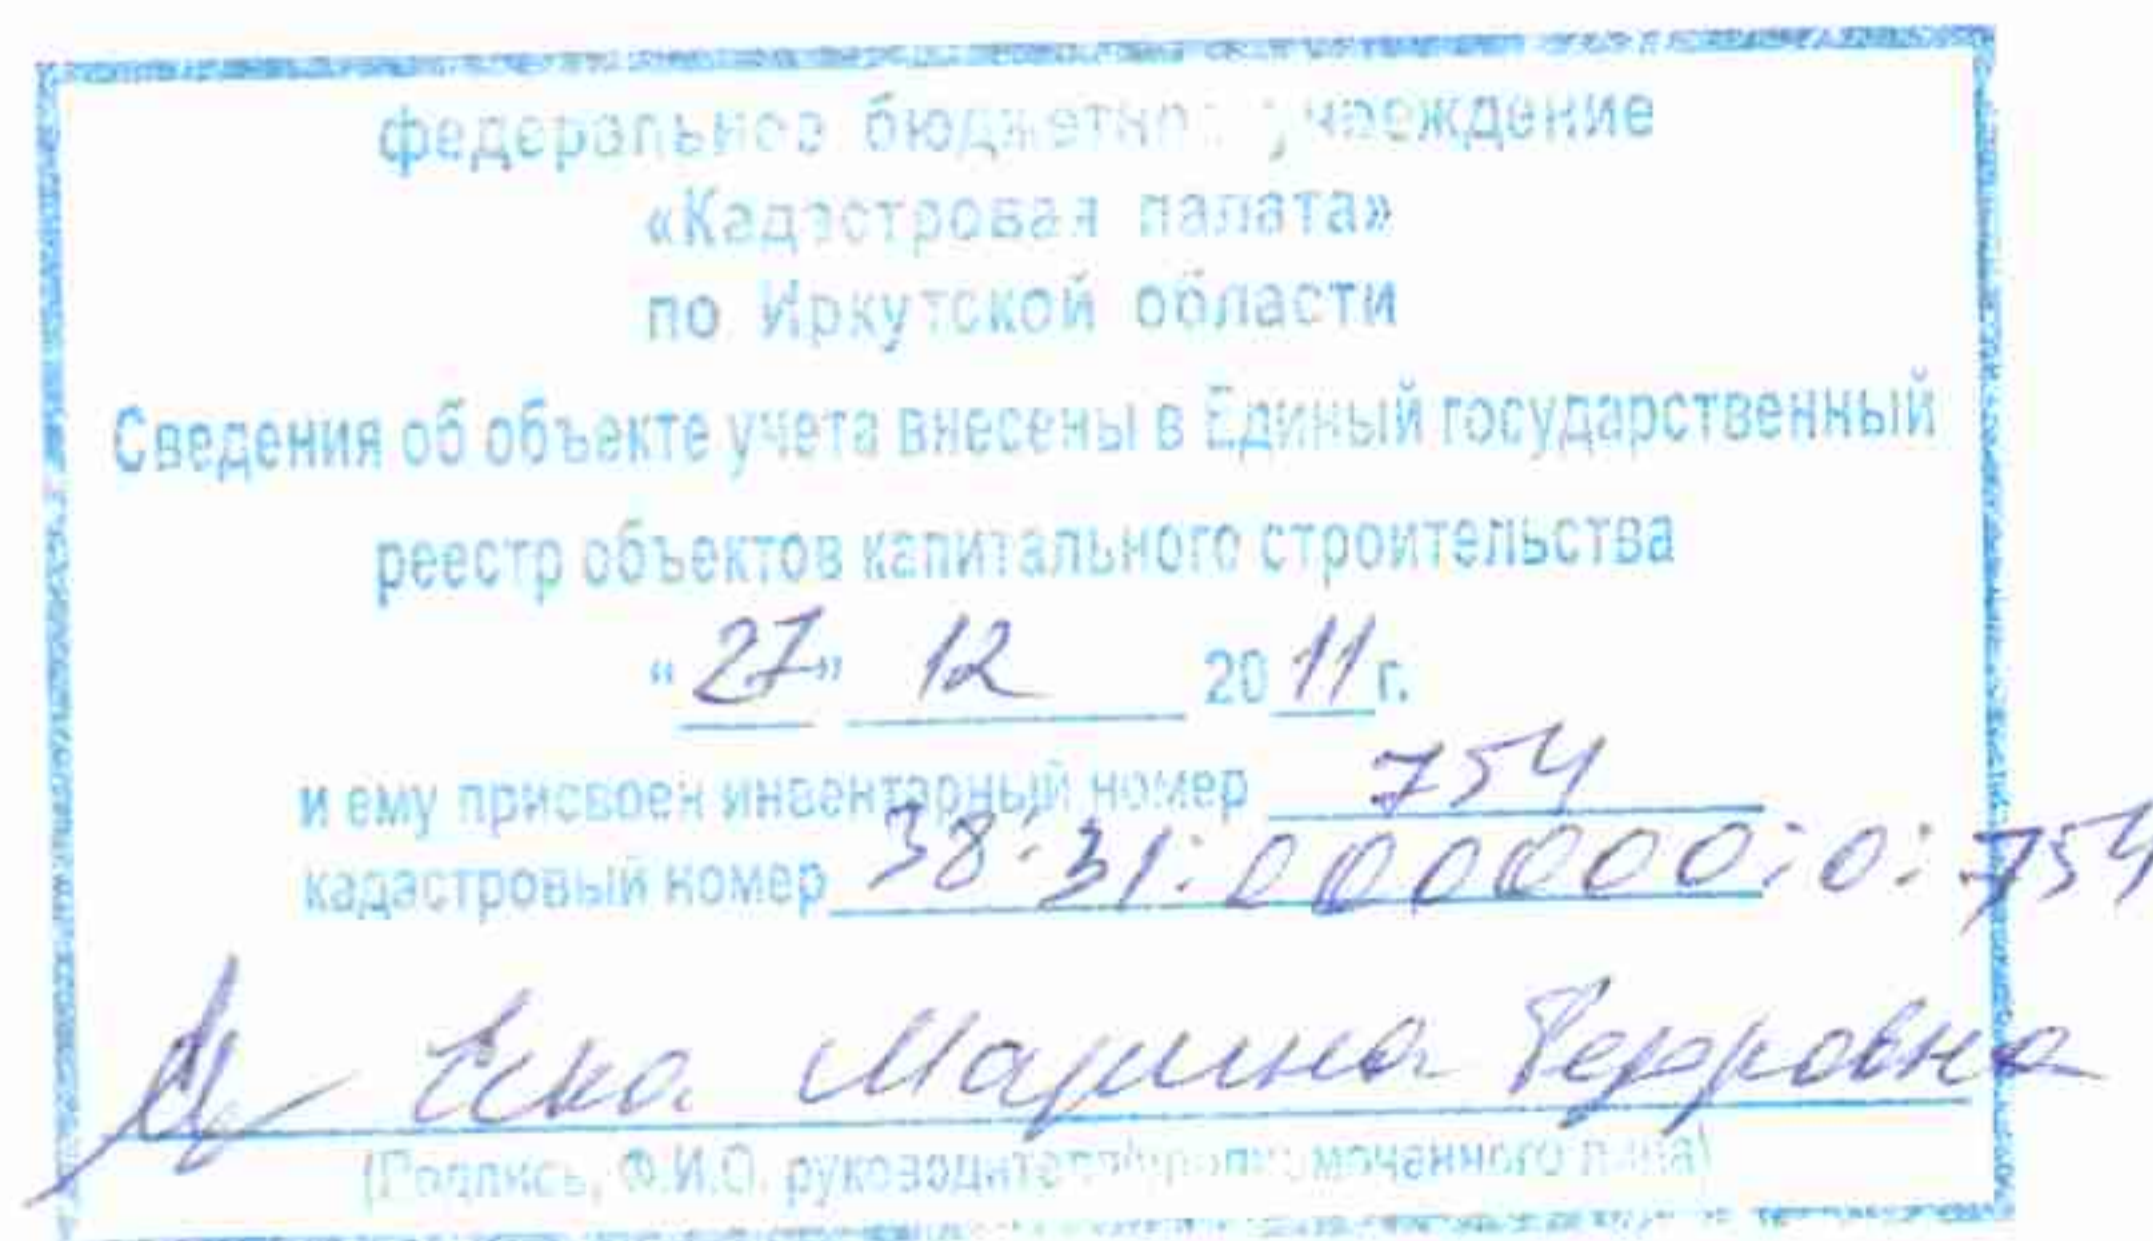 федеральное бюджетное учреждение
«Кадастровая палата»
по Иркутской области
Сведения об объекте учета внесены в Единый государственный
реестр объектов капитального строительства
“27” 12 2011 г.
и ему присвоен инвентарный номер 754
кадастровый номер 38:31:000000:0:754
Марина
(Подпись, Ф.И.О. руководителя/уполномоченного лица)